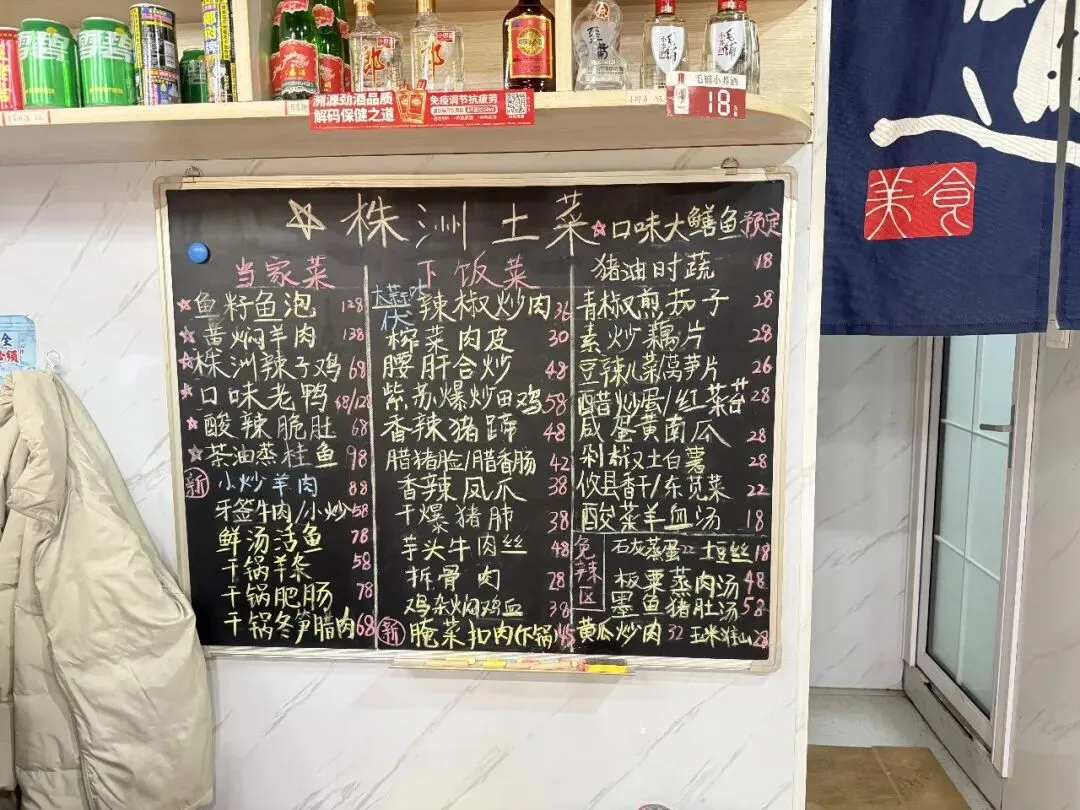 雪碧
雪碧
郎
郎
毛铺
毛铺
溯源劲酒品质
解码保健之道
免疫调节抗疲劳
毛铺小荞酒
18
美食
株洲土菜
口味大鳝鱼预定
当家菜
鱼籽鱼泡 128
黄焖羊肉 138
株洲辣子鸡 68
口味老鸭 68/128
酸辣脆肚 68
茶油蒸桂鱼 98
新 小炒羊肉 88
牙签牛肉/小炒 58
鲜汤活鱼 78
干锅羊杂 58
干锅肥肠 78
干锅冬笋腊肉 68
下饭菜
辣椒炒肉 36
榨菜肉皮 30
腰肝合炒 48
紫苏爆炒田鸡 58
香辣猪蹄 48
腊猪脸/腊香肠 42
香辣凤爪 38
干爆猪肺 38
芋头牛肉丝 48
拆骨肉 28
鸡杂焖鸡血 38
新 腌菜扣肉(下锅) 45
猪油时蔬 18
青椒煎茄子 28
素炒藕片 28
豆辣儿菜/莴笋片 26
醋炒蛋/红菜苔 28
咸蛋黄南瓜 28
剁椒土白薯 28
攸县香干/东苋菜 22
酸菜羊血汤 18
免辣区
石灰蒸蛋 22 土豆丝 18
板栗蒸肉汤 48
墨鱼猪肚汤 58
黄瓜炒肉 32 玉米淮山 28